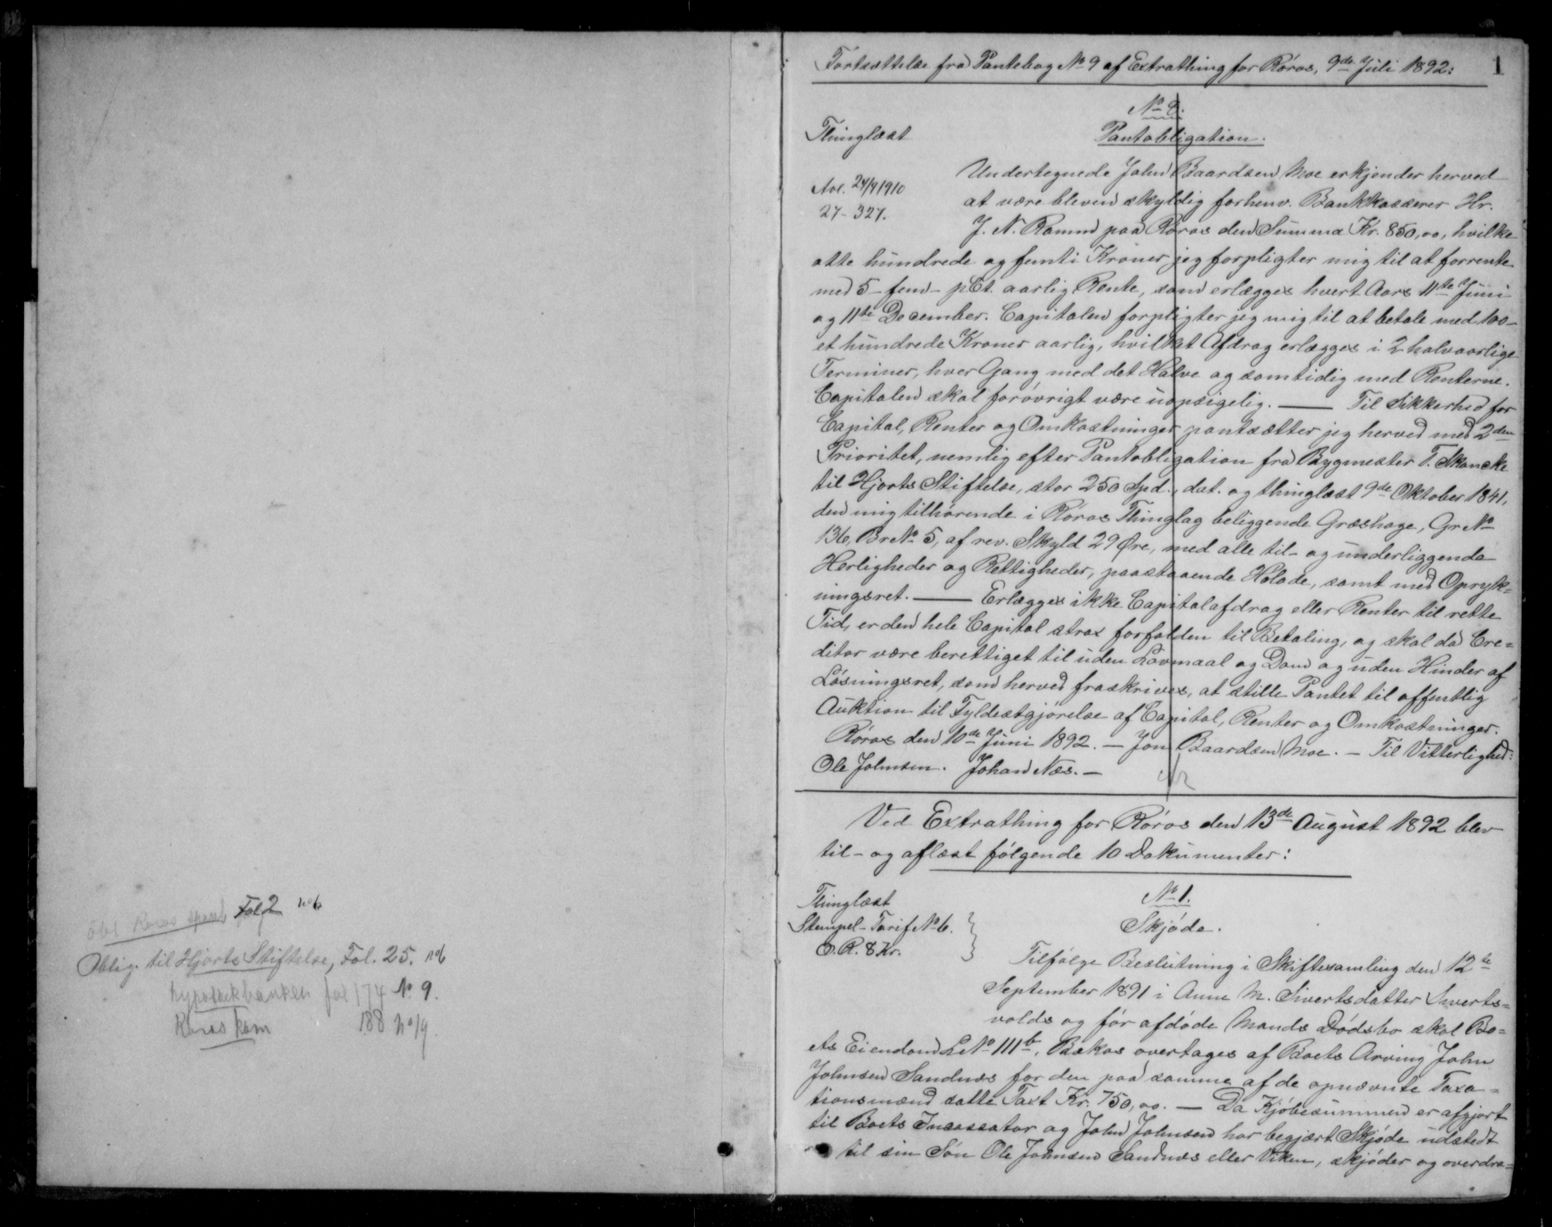 Fol 2 no 6
Oblig. til Hjorts Stiftelse, Fol. 25. no 6
Hypothekbanken fol 174 No 9.
Røros kom 188 no 9
Fortsættelse fra Pantebog No 9 af Extrathing for Røros, 9de Juli 1892: 1
No 9.
Thinglæst Pantobligation.
Undertegnede John Baardsen Moe erkjender herved
Avl. 24/9 1910 at være bleven skyldig forhenv. Bankkasserer Hr.
27-327. J. N. Ramm paa Røros den Summa Kr. 850,00, hvilke
otte hundrede og femti Kroner jeg forpligter mig til at forrente
med 5 - fem - pCt. aarlig Rente, som erlægges hvert Aars 11te Juni
og 11te December. Capitalen forpligter jeg mig til at betale med 100-
et hundrede Kroner aarlig, hvilket Afdrag erlægges i 2 halvaarlige
Terminer, hver Gang med det Halve og samtidig med Renterne.
Capitalen skal forøvrigt være uopsigelig. — Til Sikkerhed for
Capital, Renter og Omkostninger pantsætter jeg herved med 2den
Prioritet, nemlig efter Pantobligation fra Bygmester T. Skancke
til Hjorts Stiftelse, stor 250 Spd., dat. og thinglæst 9de Oktober 1841,
den mig tilhørende i Røros Thinglag beliggende Græshage, Gr No
136, Br No 5, af rev. Skyld 29 Øre, med alle til- og underliggende
Herligheder og Rettigheder, paastaaende Hølade, samt med Opryk=
ningsret. — Erlægges ikke Capitalafdrag eller Renter til rette
Tid, er den hele Capital strax forfalden til Betaling, og skal da Cre=
ditor være berettiget til uden Lovmaal og Dom og uden Hinder af
Løsningsret, som herved fraskrives, at stille Pantet til offentlig
Auktion til Fyldestgjørelse af Capital, Renter og Omkostninger.
Røros den 10de Juni 1892. — Jon Baardsen Moe. — Til Vitterlighed:
Ole Johnsen. Johan Næs. —
Ved Extrathing for Røros den 13de August 1892 blev
til- og aflæst følgende 10 Dokumenter:
Thinglæst No 1.
Stempel-Tarif No 6. Skjøde.
O. R. 8 Kr.
Tilfølge Beslutning i Skiftesamling den 12te
September 1891 i Anne M. Sivertsdatter Siverts=
volds og før afdøde Mands Dødsbo skal Bo=
ets Eiendom L No 111b, Bekos overtages af Boets Arving John
Johnsen Sandnæs for den paa samme af de opnævnte Taxa=
tionsmænd satte Taxt Kr. 750,00. — Da Kjøbesummen er afgjort
til Boets Incassator og John Johnsen har begjært Skjøde udstedt
til sin Søn Ole Johnsen Sandnæs eller Viken, skjøder og overdra=